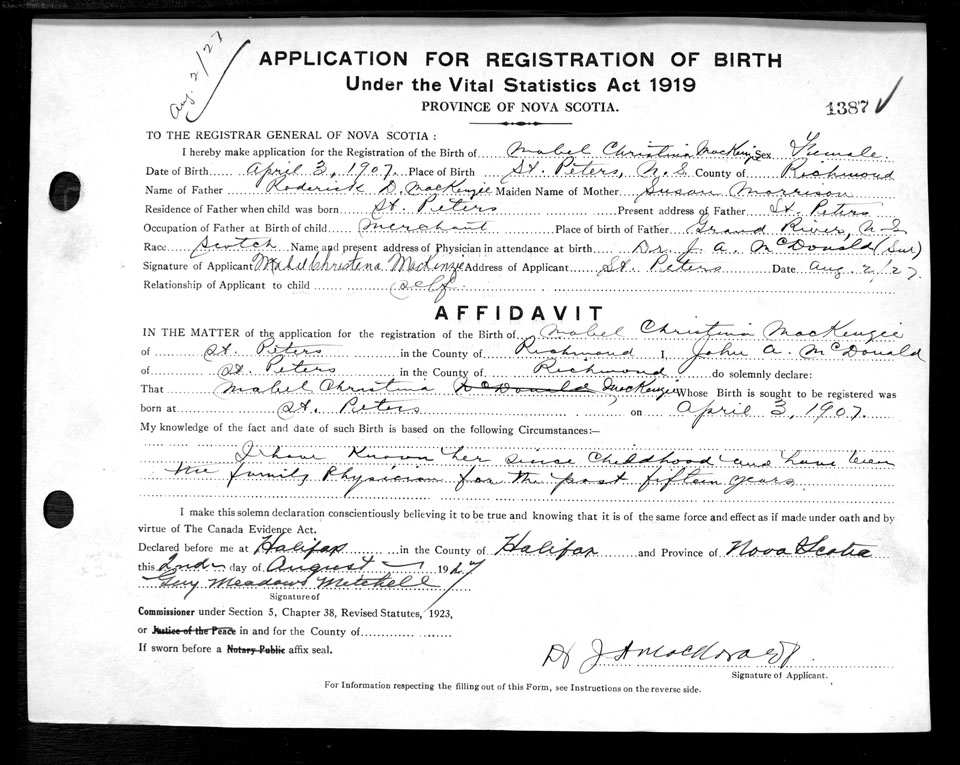 Aug. 2/27
APPLICATION FOR REGISTRATION OF BIRTH
Under the Vital Statistics Act 1919
PROVINCE OF NOVA SCOTIA.
1387 ✓
TO THE REGISTRAR GENERAL OF NOVA SCOTIA :
I hereby make application for the Registration of the Birth of Mabel Christina MacKenzie Sex Female.
Date of Birth April 3, 1907. Place of Birth St. Peters, N.S. County of Richmond
Name of Father Roderick D. MacKenzie Maiden Name of Mother Susan Morrison
Residence of Father when child was born St. Peters Present address of Father St. Peters
Occupation of Father at Birth of child Merchant Place of birth of Father Grand River, N.S
Race Scotch Name and present address of Physician in attendance at birth Dr. J. A. McDonald
Signature of Applicant Mabel Christena MacKenzie Address of Applicant St. Peters Date Aug 2/27.
Relationship of Applicant to child self.
AFFIDAVIT
IN THE MATTER of the application for the registration of the Birth of Mabel Christina MacKenzie
of St. Peters in the County of Richmond I, John A. McDonald
of St. Peters in the County of Richmond do solemnly declare:
That Mabel Christina McDonald MacKenzie Whose Birth is sought to be registered was
born at St. Peters on April 3, 1907.
My knowledge of the fact and date of such Birth is based on the following Circumstances:—
I have known her since childhood and have been
the family Physician for the past fifteen years.
I make this solemn declaration conscientiously believing it to be true and knowing that it is of the same force and effect as if made under oath and by
virtue of The Canada Evidence Act.
Declared before me at Halifax in the County of Halifax and Province of Nova Scotia
this 2nd day of August 1927
Guy Meadows Mitchell
Signature of
Commissioner under Section 5, Chapter 38, Revised Statutes, 1923,
or Justice of the Peace in and for the County of
If sworn before a Notary Public affix seal.
Dr J A MacDonald
Signature of Applicant.
For Information respecting the filling out of this Form, see Instructions on the reverse side.